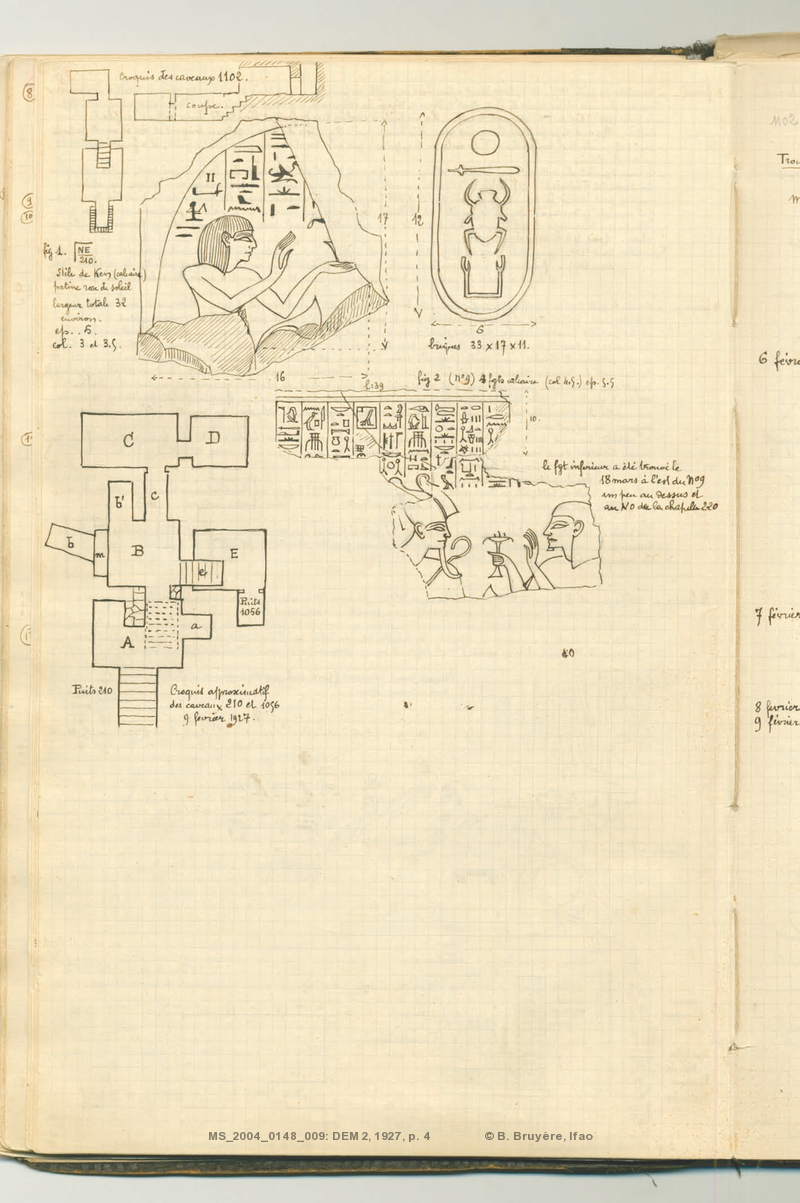 Croquis des caveaux 1102.
coupe.
8
9
10
fig 1. NE
210.
Stèle de Ken (calcaire)
patine rose de soleil
largeur totale 32
environ.
ep. . 6.
col. 3 et 3.5.
17
16
l:39
12
6
briques 33 x 17 x 11.
fig 2 (n°9) 4 fgts calcaire (col 4.5.) ep. 5.5
10.
le fgt inférieur a été trouvé le
18 mars à l'est du n°9
un peu au dessus et
au NO de la chapelle 220
C
D
c
b'
b
m
B
E
e
Puits
1056
a
A
Puits 210
Croquis approximatif
des caveaux 210 et 1056
9 fevrier 1927.
1102
6 févri
7 février
8 février
9 février
MS_2004_0148_009: DEM 2, 1927, p. 4
© B. Bruyère, Ifao